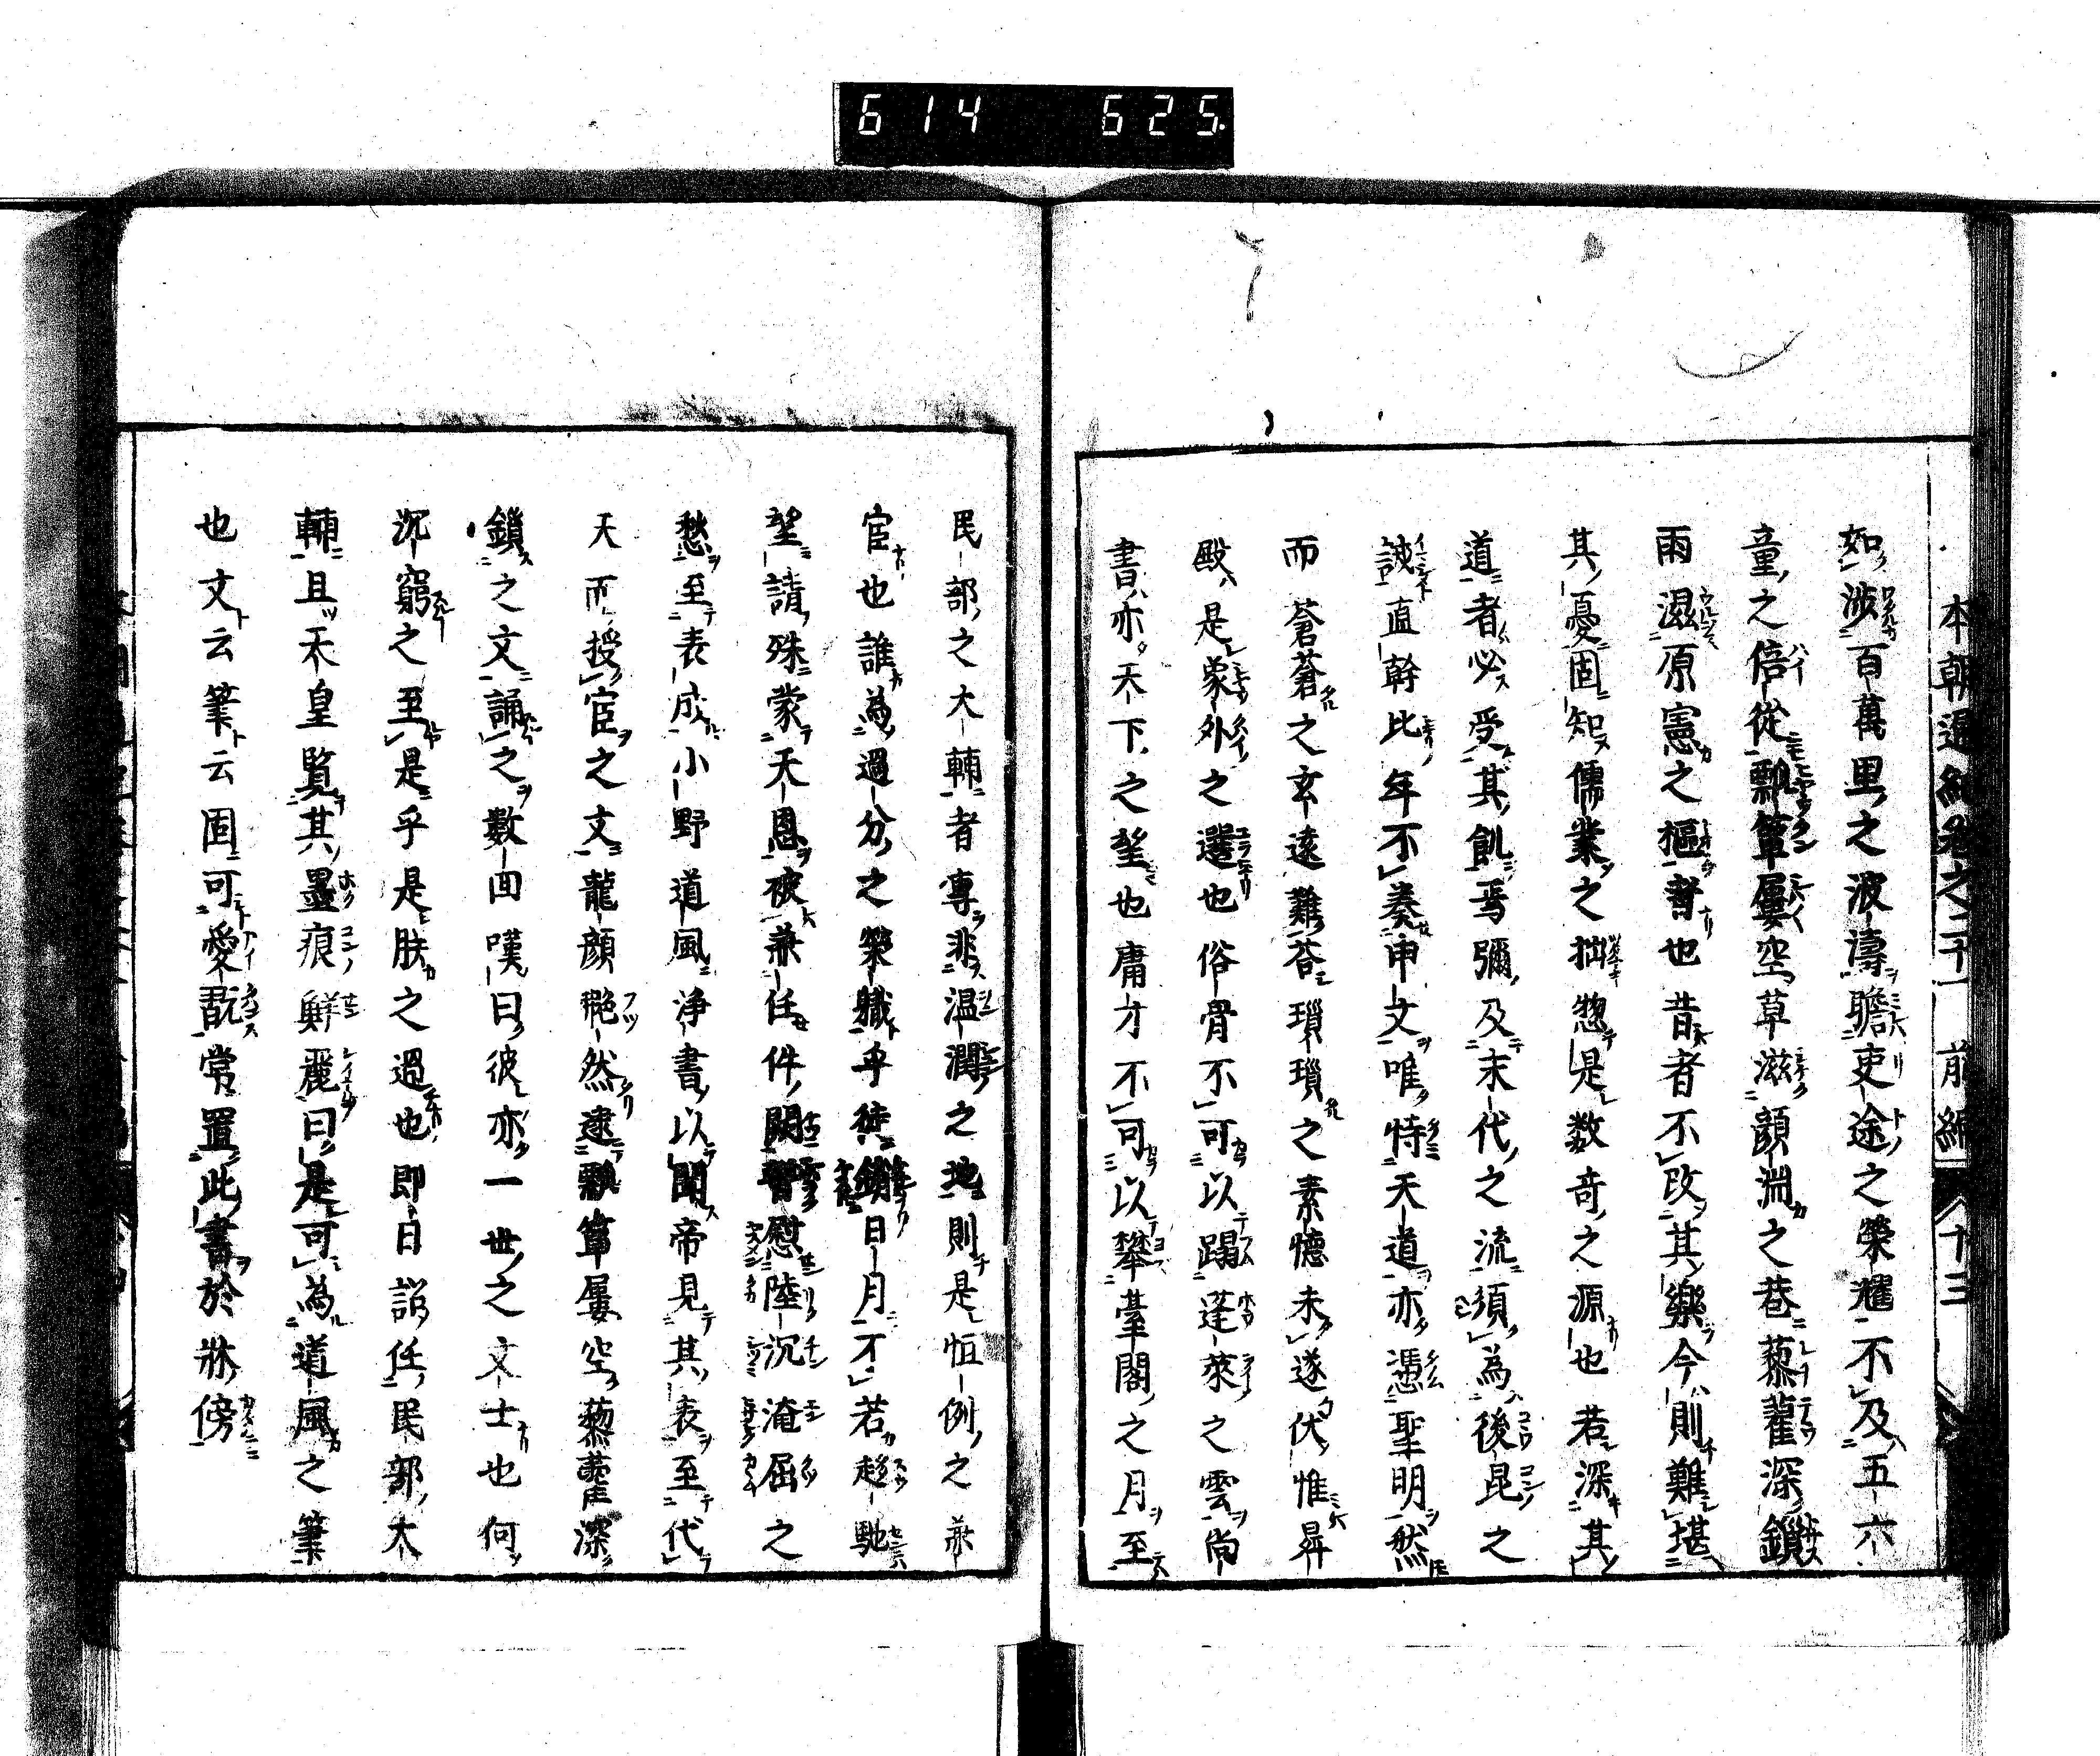 614 625.
本朝通紀卷之二十一 前編 十三
如渉百萬里之波濤瞻吏途之榮耀不及五六
童之倍從瓢簞屢空草滋顏淵之巷藜藿深鎖
雨滋原憲之樞者也昔者不改其樂今則難堪
其憂固知儒業之拙惣是数奇之源也若深其
道者必受其飢焉彌及末代之流須為後昆之
誠直幹比年不奏申文唯恃天道亦憑聖明然
而蒼蒼之玄遠難荅瑣瑣之素憶未遂伏惟昇
殿是象外之選也俗骨不可以蹋蓬萊之雲尚
書亦天下之望也庸才不可以攀臺閣之月至
民部之大輔者專非温潤之地則是恒例之兼
官也誰為過分之榮職乎徒鎖日月不若趍馳
望請殊蒙天恩被兼任件闕暫慰陸沉淹屈之
愁至表成小野道風浄書以聞帝見其表至代
天而授官之文龍顏艴然逮瓢簞屢空藜藿深
鎖之文誦之数回嘆曰彼亦一世之文士也何
沉窮之至是乎是朕之過也即日詔任民部大
輔且天皇覧其墨痕鮮麗曰是可為道風之筆
也文云筆云固可愛翫常置此書於牀傍